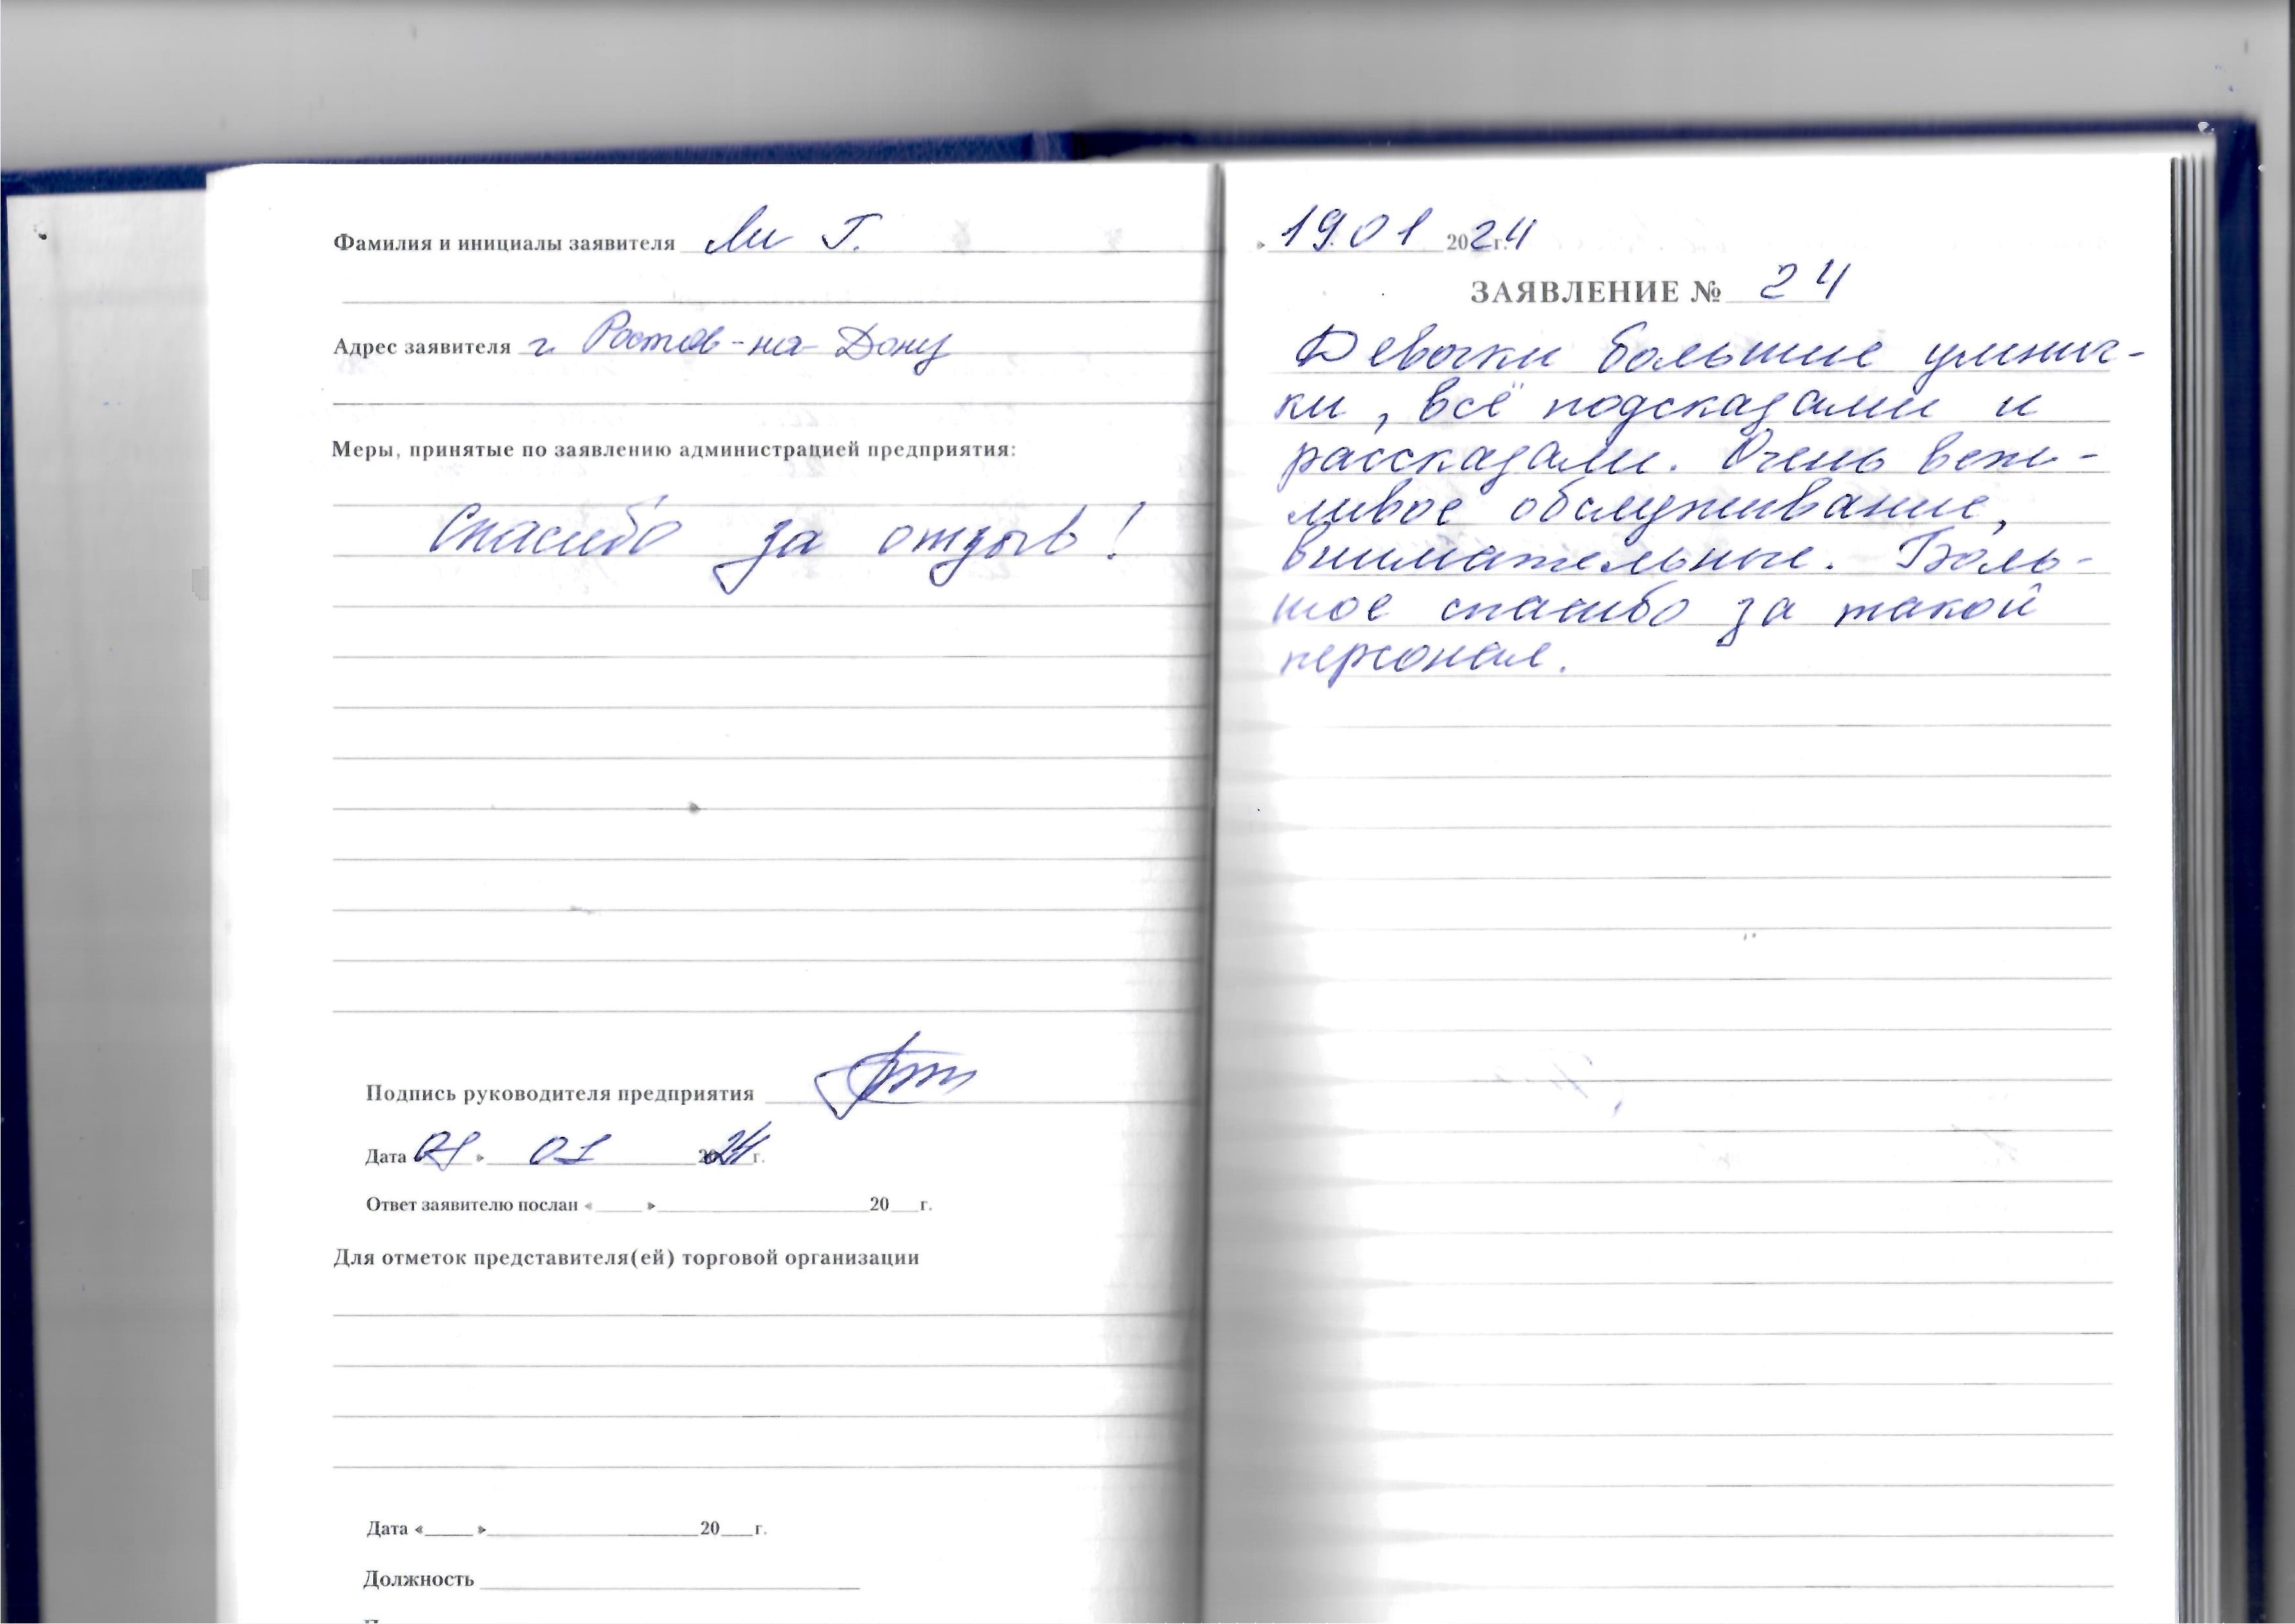 Фамилия и инициалы заявителя Ли Г.
Адрес заявителя г. Ростов-на-Дону
Меры, принятые по заявлению администрацией предприятия:
Спасибо за отзыв!
Подпись руководителя предприятия
Дата » 01 2024 г.
Ответ заявителю послан « » 20 г.
Для отметок представителя(ей) торговой организации
Дата « » 20 г.
Должность
» 19.01 2024 г.
ЗАЯВЛЕНИЕ № 24
Девочки большие умнич-
ки, всё подсказали и
рассказали. Очень веж-
ливое обслуживание,
внимательные. Боль-
шое спасибо за такой
персонал.